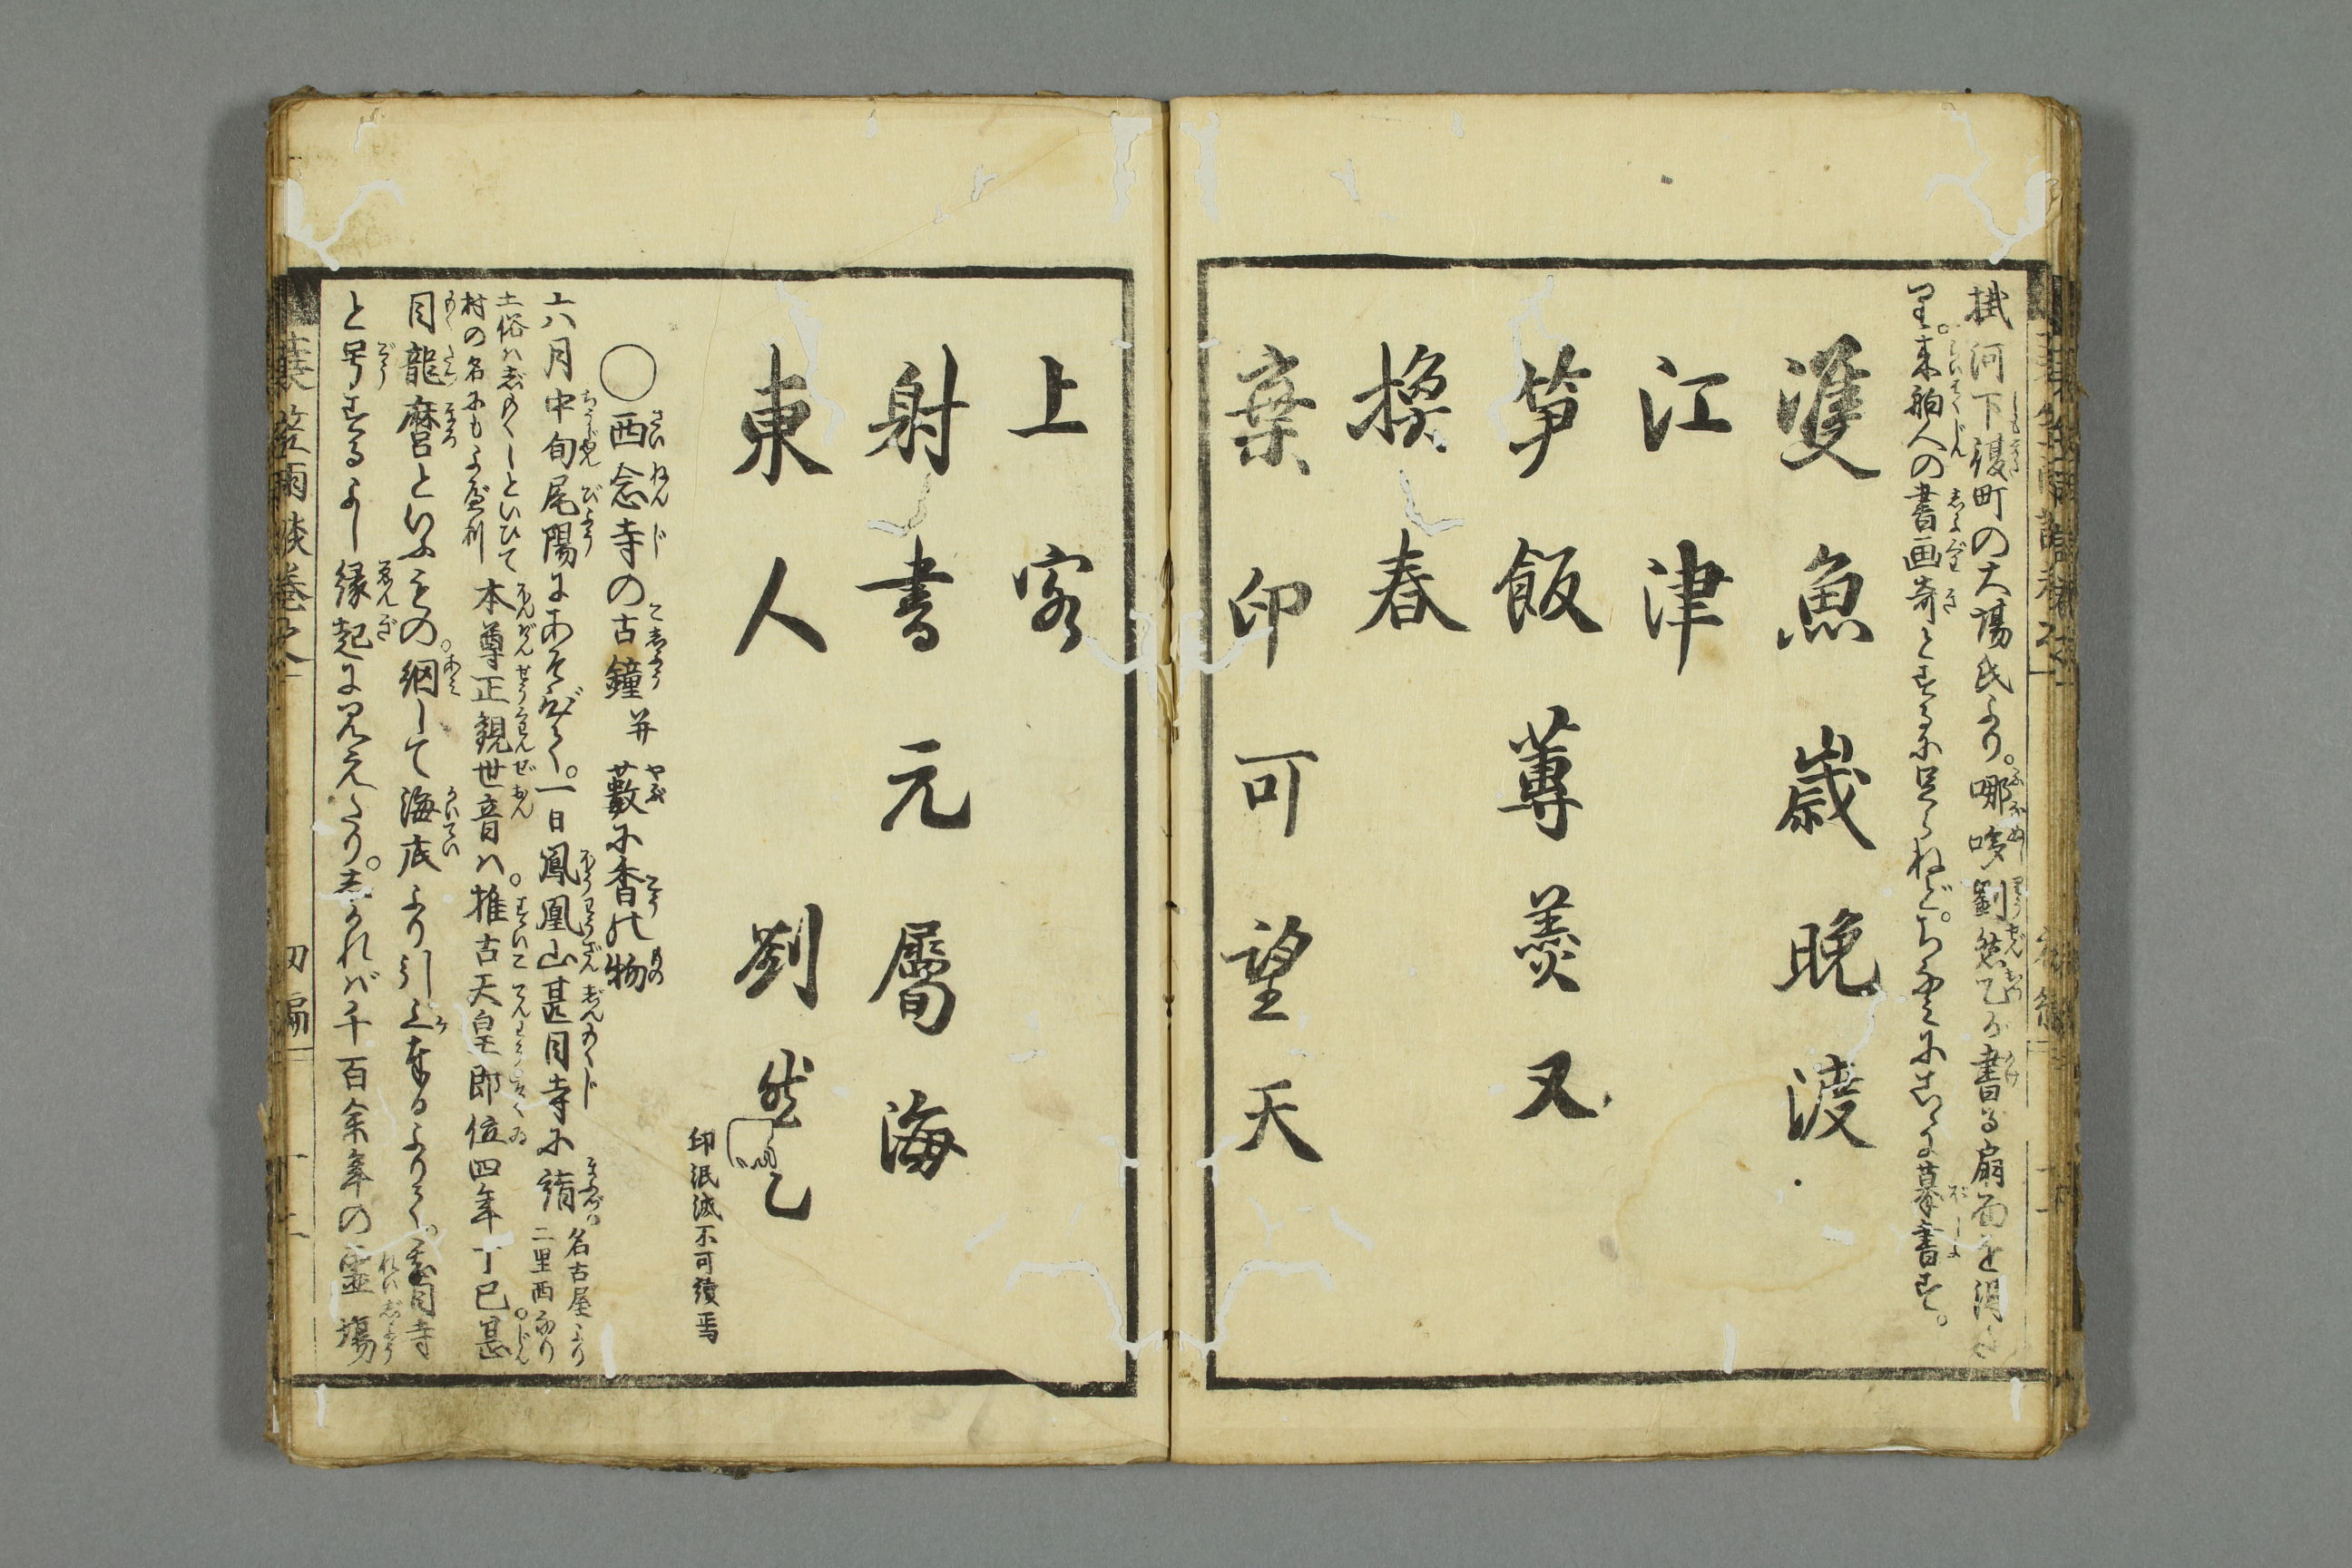 掛河下俣町の大場氏より。哪哆劉然乙が書る扇面を得た
り。来舶人の書画奇とするに足らねど。ちなみにこゝに摹書す。
雙魚歳晩渡
江津
筍飯蓴羮又
換春
棄印可望天
上客
射書元屬海
東人　劉然乙
印泯滅不可讀焉
○西念寺の古鐘并藪に香の物
六月中旬尾陽にあそびて。一日鳳凰山甚目寺に詣
名古屋より
二里西なり
土俗はじもくじといひて
村の名にもよべり
本尊正観世音は。推古天皇即位四年丁巳甚
目龍麿といふものゝ網して海底より引上奉るよりて。甚目寺
と号するよし縁起に見えたり。しかれば千百余年の霊場
蓑笠雨談巻之
初編
十二